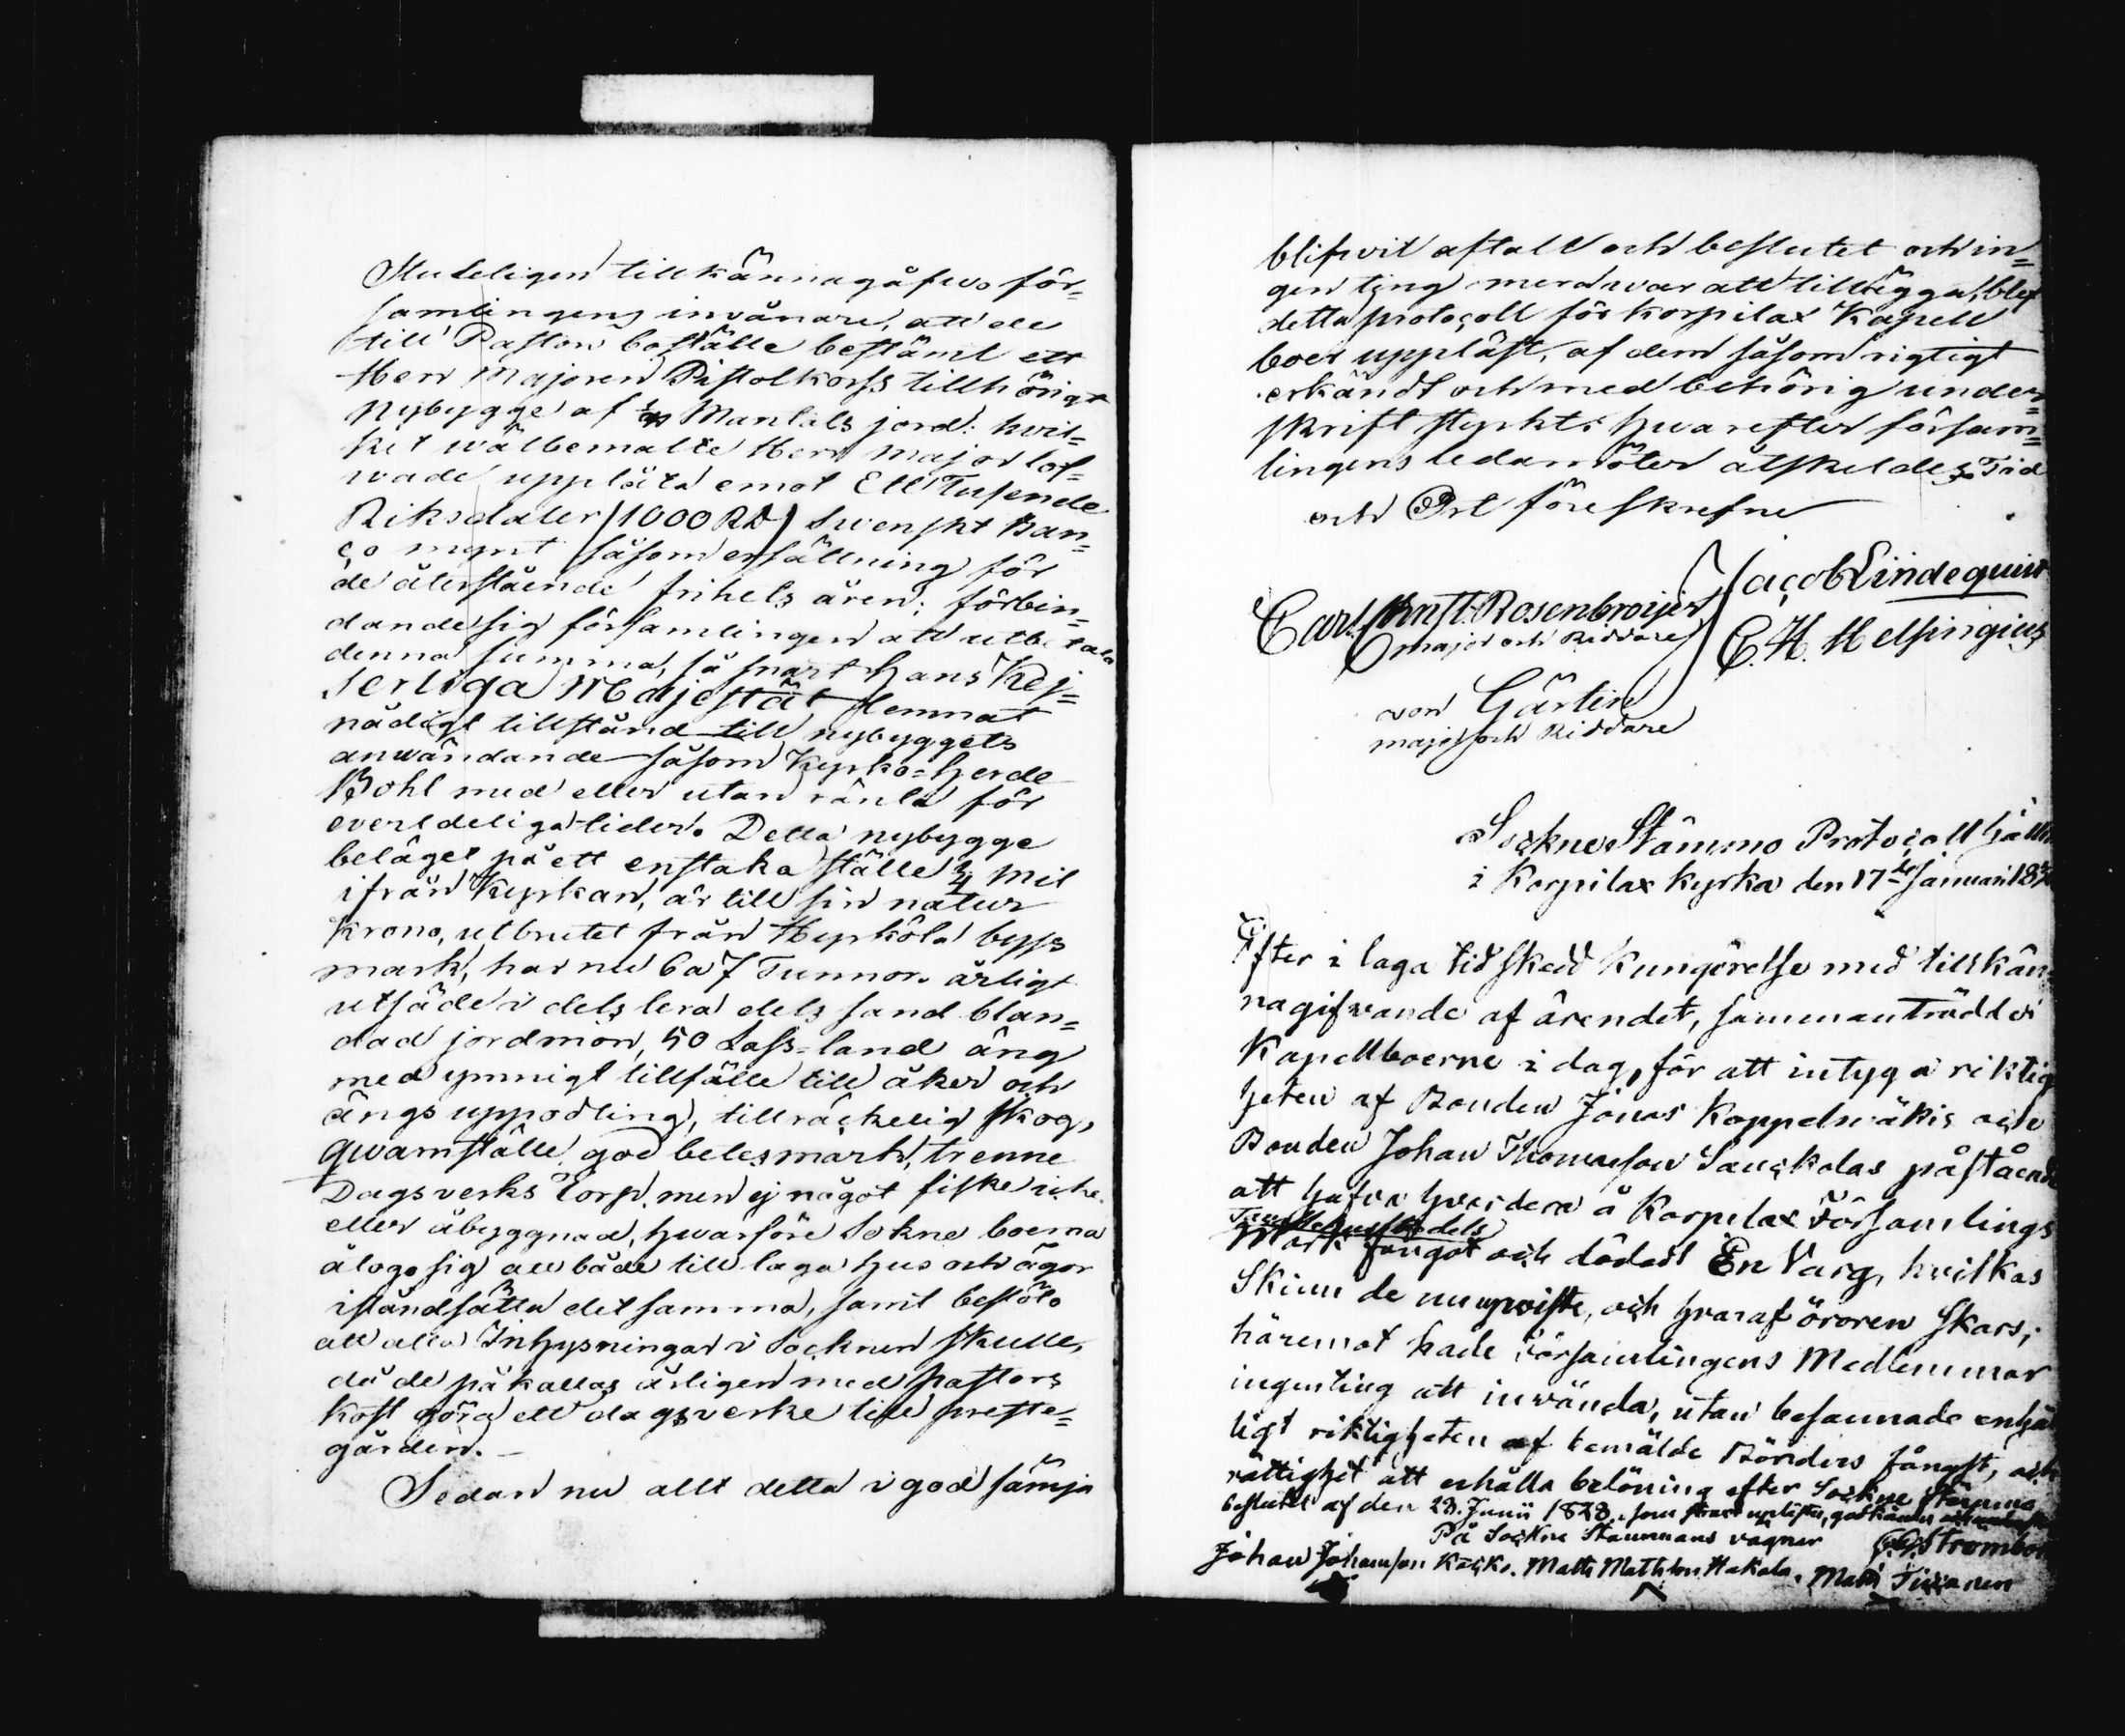 Sluteligen tillkännagåfwo för=
samlingens invånare, att de
till Pastors boställe bestämt ett
Herr Majoren Pistolkorss tillhörigt
Nybygge af Mantals jord: hvil=
ket wälbemälte Herr Major lof=
wade upplåta emot Ett Tusende
Riksdaler /1000 RD/ Swenskt Ban=
co mynt såsom ersättning för
de återstående frihets åren; förbin=
dande sig församlingen att utbetala
denna summa, så snart Hans Kej=
serliga Majestät lemnat
nådigt tillstånd till nybyggets
användande såsom Kyrko=herde
Bohl med eller utan ränta för
everldeliga tider. Detta nybygge
beläget på ett enstaka ställe 3/4 mil
ifrån Kyrkan, är till sin natur
Krono, utbrutet från Hyrkölä byss
mark, har nu 6 a 7 Tunnors årligt
utsäde i dels lera dels sand blan=
dad jordmon, 50 Lass=land äng
med ymnigt tillfälle till åker och
ängs uppodling, tillräckelig skog,
qwarnställe, god betesmark, trenne
Dagsverks Torp, men ej något fiske
eller åbyggnad, hwarföre Sokne boerna
ålogo sig att både till laga hus och ägor
iståndsätta det samma, samt beslöto
att alla Inhysningar i Socknen skulle,
då de påkallas årligen med pastors
kost göra ett dagsverke till preste=
gården.—
Sedan nu allt detta i god sämja
blifwit aftalt och beslutet och in=
gen ting mera war att tillägga, blef
detta protocoll för Korpilax Kapell
boer uppläst, af dem såsom rigtigt
erkändt och med behörig under=
skrift styrkt: hwarefter försam=
lingens ledamöter åtskeldes. Tid
och Ort föreskrefne
Jacob Lindequist
Carl Rosenbroijer
major och Riddare
C. H. Helsingius
von Gärtin
major och Riddare
Sockne Stämmo Protocoll hållit
i Korpilax Kyrka den 17de Januari
Efter i laga tid skedd Kungörelse med tillkän
nagifvande af ärendet, sammanträdde
Kapellboerne i dag, för att intyga riktig
heten af Bonden Jonas Koppelmäkis och
Bonden Johan Thomasson Sauckolas påstående
att hafva hvardera å Korpilax Församlings
mark fångat och dödat En Varg, hvilkas
Skinn de nu upviste, och hvaraf öronen skars;
häremot hade Församlingens Medlemmar
ingenting att invända, utan besannade enhäl
ligt riktigheten af bemälde Bönders fångst, och
rättighet att erhålla belöning efter Sockne Stämmo
beslutet af den 23. Junii 1828, som uplästes, godkändes
På Sockne Stämmans vägnar Strömborg
Johan Johansson Käcko. Matts Mathsson Hakala. Matts